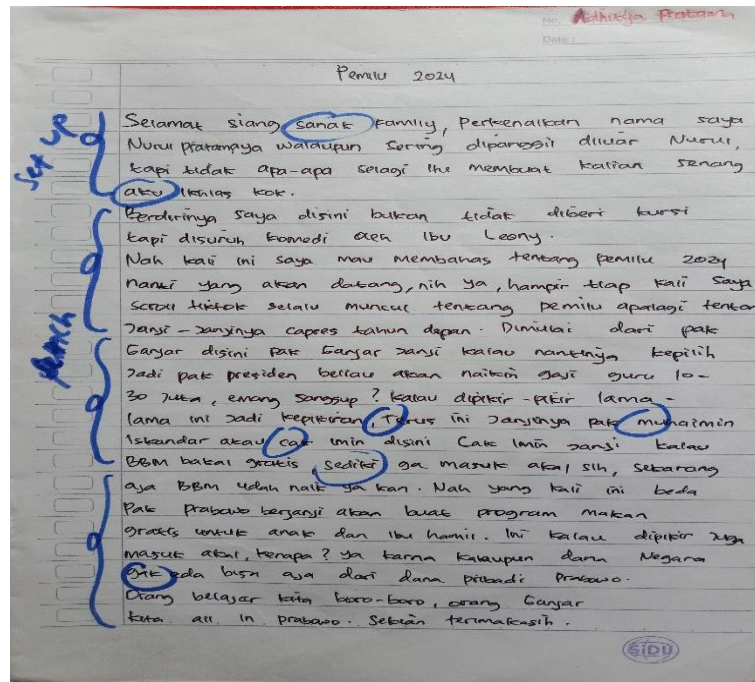 No. Adhitya Pratama
Date :
Pemilu 2024
Set up
Selamat siang sanak family, perkenalkan nama saya
Nurul pratampaya walaupun sering dipanggil diluar Nurul,
tapi tidak apa-apa selagi itu membuat kalian senang
aku ikhlas kok.
Berdirinya saya disini bukan tidak diberi kursi
tapi disuruh komedi oleh Ibu Leony.
Nah kali ini saya mau membahas tentang pemilu 2024
nanti yang akan datang, nih ya, hampir tiap kali saya
scroll tiktok selalu muncul tentang pemilu apalagi tenta
Janji-Janjinya capres tahun depan. Dimulai dari pak
Ganjar disini pak Ganjar Janji kalau nantinya kepilih
Jadi pak presiden beliau akan naikin gaji guru 10-
30 Juta, emang sanggup? kalau dipikir-pikir lama-
lama ini Jadi kepikiran, Terus ini Janjinya pak muhaimin
Iskandar atau cak imin disini Cak Imin Janji kalau
BBM bakal gratis, sedikit ga masuk akal sih, sekarang
aja BBM udah naik ya kan. Nah yang kali ini beda
Pak prabowo berjanji akan buat program makan
gratis untuk anak dan ibu hamil. Ini kalau dipikir Juga
masuk akal, kenapa? ya karna kalaupun dana Negara
gak ada bisa aja dari dana pribadi Prabowo.
Orang belajar kita boro-boro, orang Ganjar
kita all in prabowo. Sekian terimakasih.
SIDU